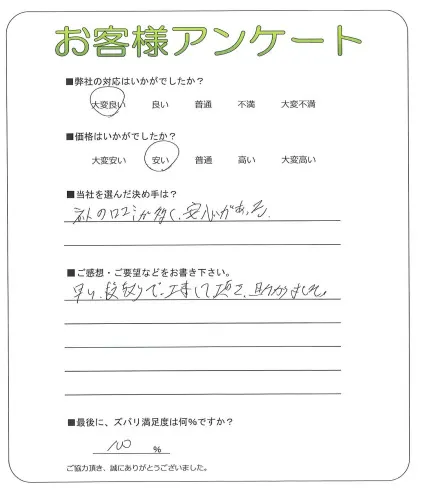 お客様アンケート
■弊社の対応はいかがでしたか？
大変良い 良い 普通 不満 大変不満
■価格はいかがでしたか？
大変安い 安い 普通 高い 大変高い
■当社を選んだ決め手は？
ネットの口コミが多く、安心がある。
■ご感想・ご要望などをお書き下さい。
早い、段取りで工事して頂き、助かりました。
■最後に、ズバリ満足度は何%ですか？
100 %
ご協力頂き、誠にありがとうございました。